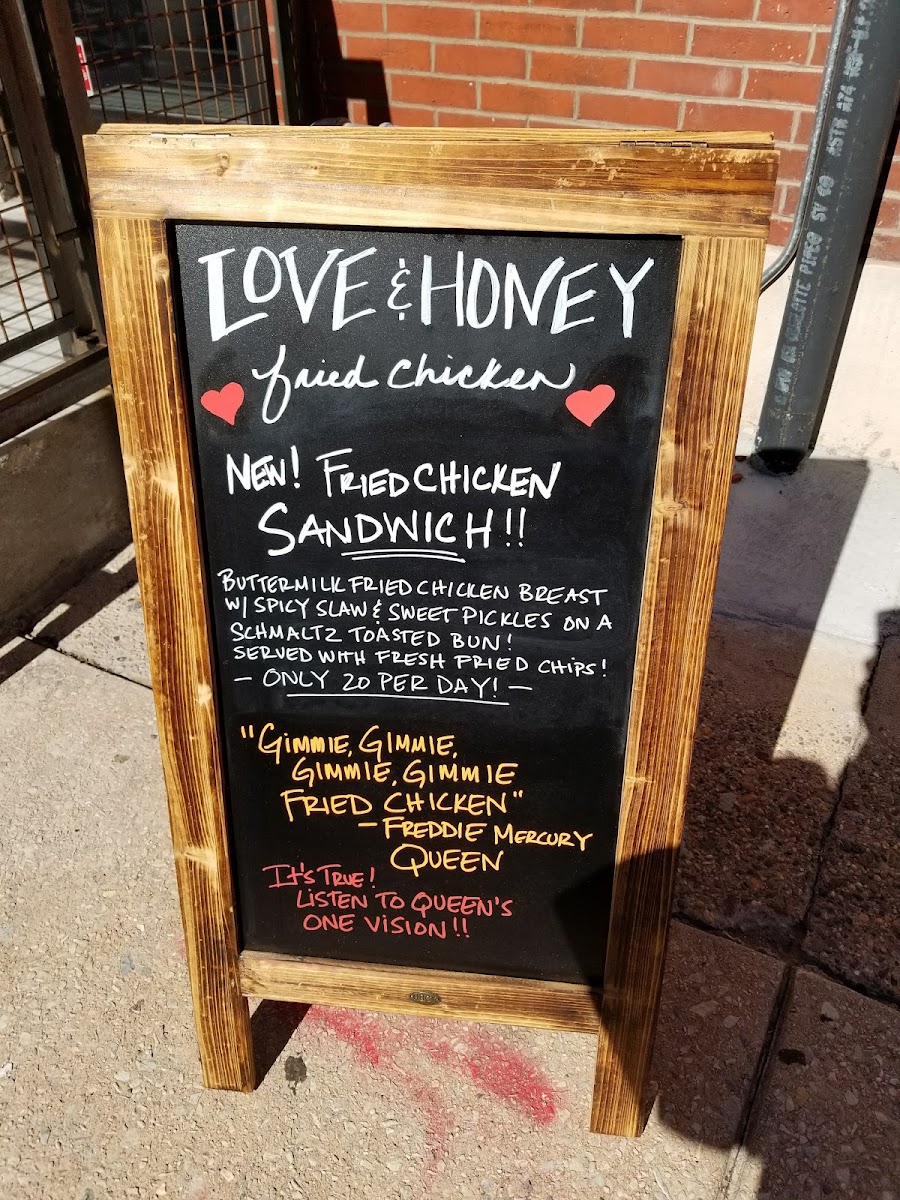 LOVE & HONEY
fried chicken
NEW! FRIED CHICKEN
SANDWICH!!
BUTTERMILK FRIED CHICKEN BREAST
W/ SPICY SLAW & SWEET PICKLES ON A
SCHMALTZ TOASTED BUN!
SERVED WITH FRESH FRIED CHIPS!
— ONLY 20 PER DAY! —
"GIMMIE, GIMMIE,
GIMMIE, GIMMIE
FRIED CHICKEN"
— FREDDIE MERCURY
QUEEN
IT'S TRUE!
LISTEN TO QUEEN'S
ONE VISION!!